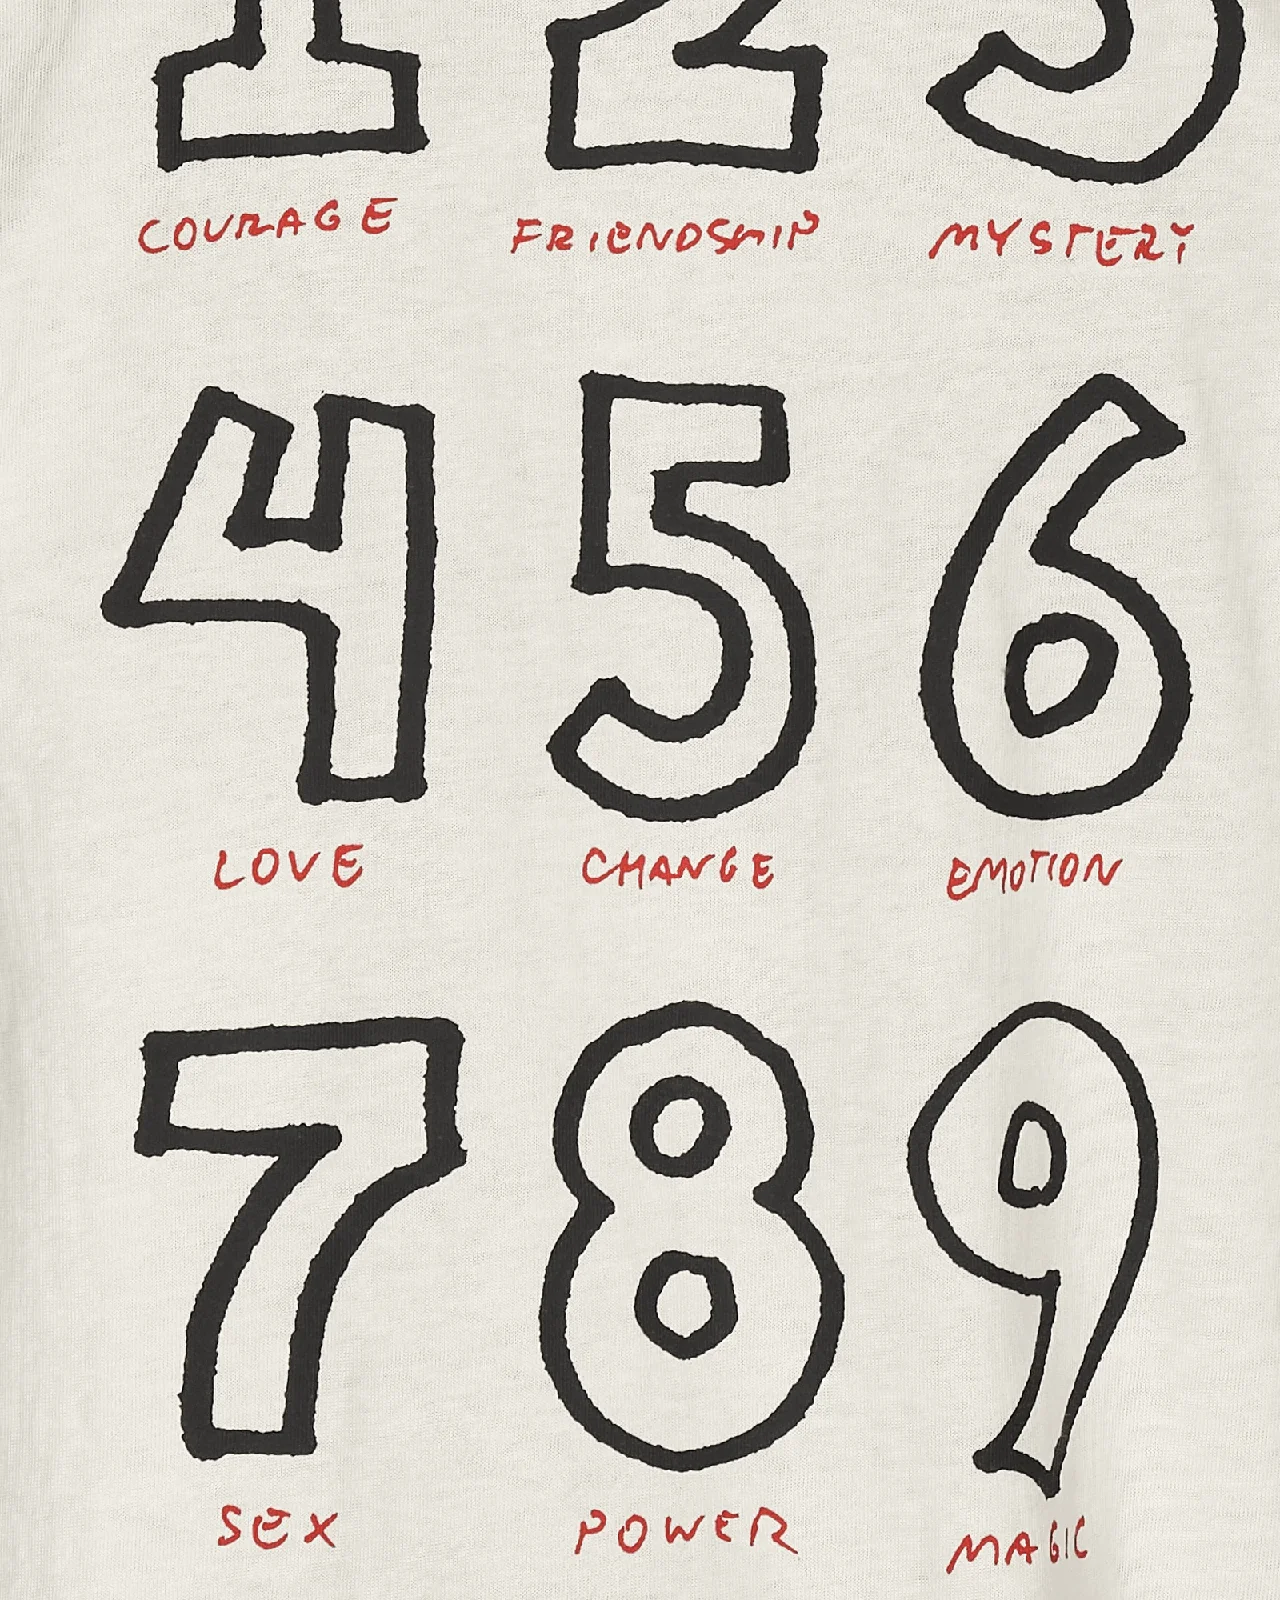 1 2 3
COURAGE FRIENDSHIP MYSTERY
4 5 6
LOVE CHANGE EMOTION
7 8 9
SEX POWER MAGIC